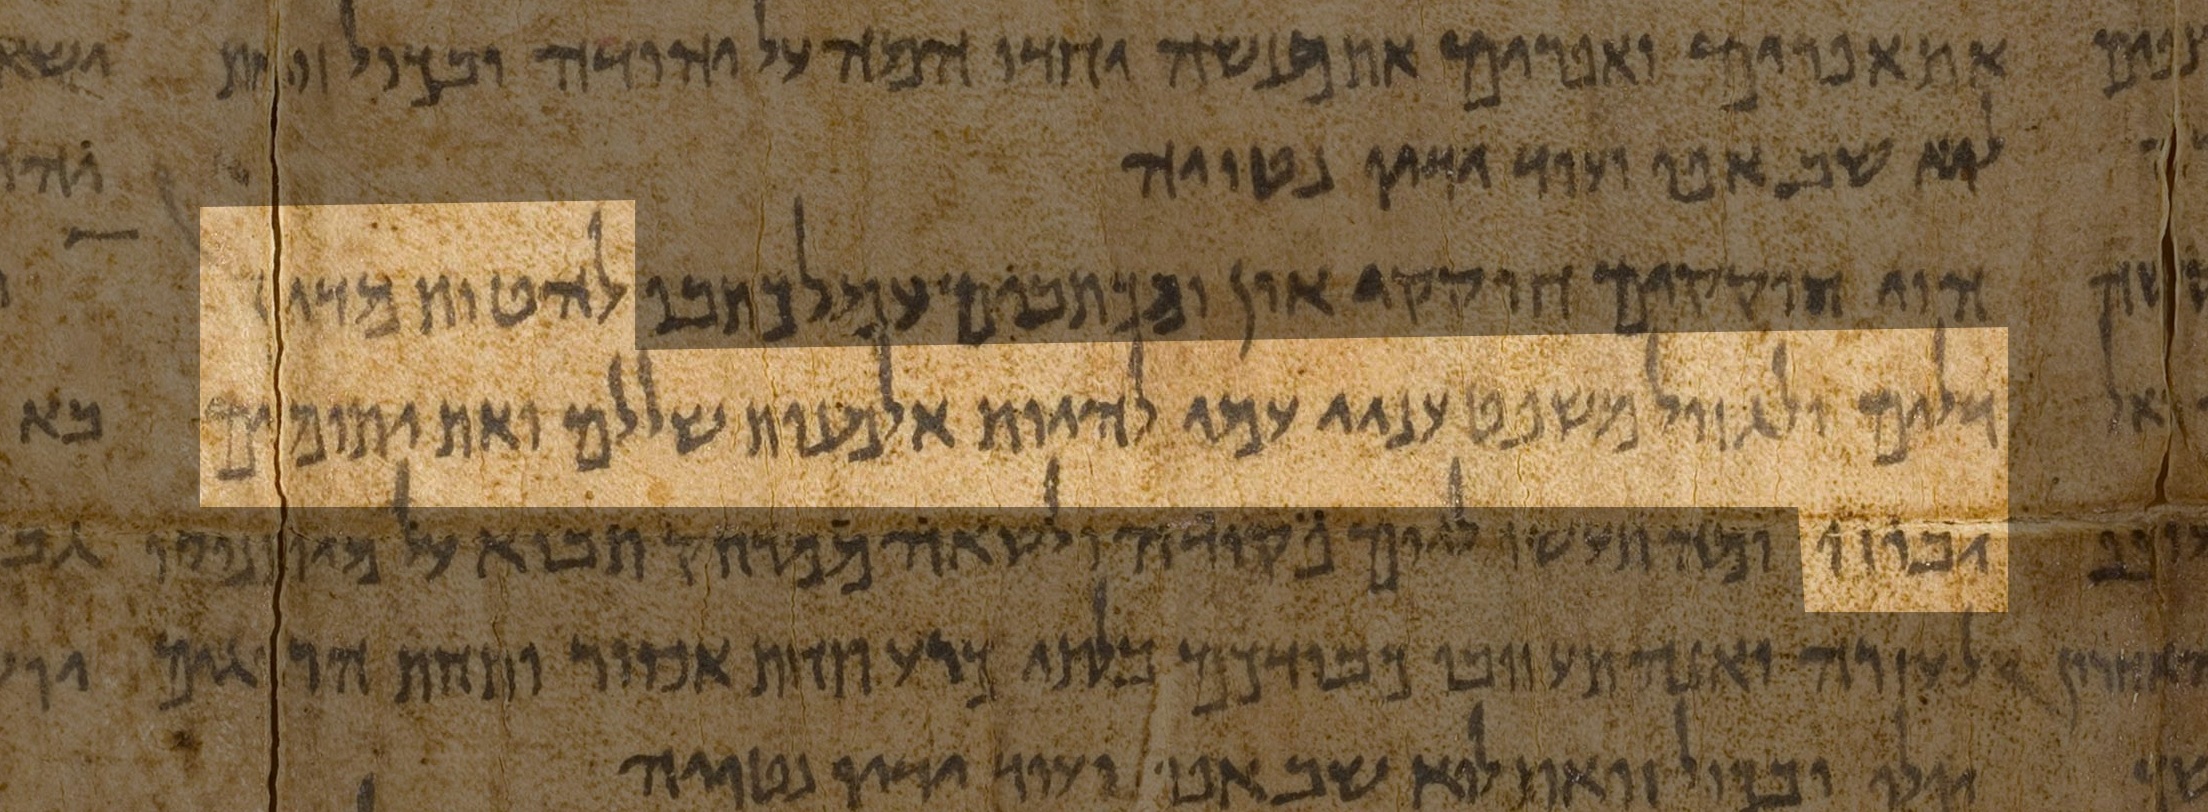 את אפרים ואפרים את מנשה יחדו המה על יהודה ובכול זואת
לוא שב אפו ועוד ידיו נטויה
הוי חוקקים חוקקי און ומכתבים עמל כתבו להטות מדין
דלים ולגזול משפט עניי עמי להיות אלמנות שללם ואת יתומים
יבוזו ומה תעשו ליום פקודה ולשאוה ממרחק תבוא על מי תנוסו
לעזרה ואנה תעזובו כבודכם בלתי כרע תחת אסיר ותחת הרוגים
יפולו ובכול זואת לוא שב אפו ועוד ידיו נטויה